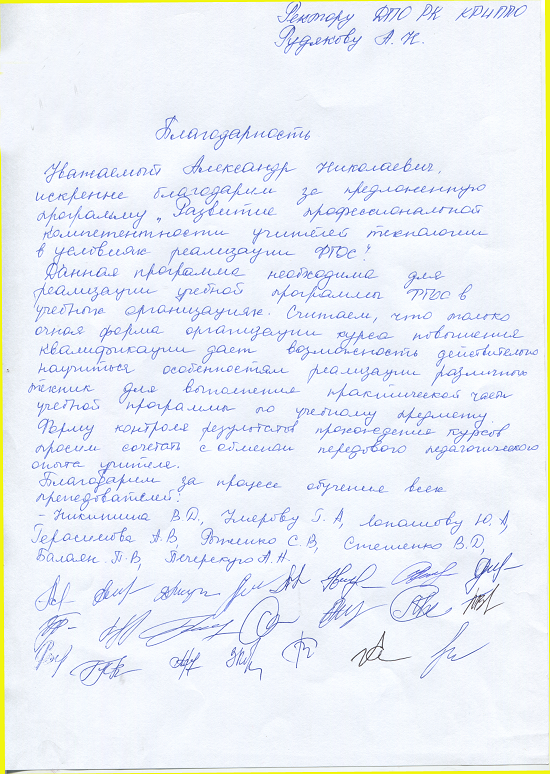 Ректору ДПО РК КРИППО
Рудякову А.Н.
Благодарность
Уважаемый Александр Николаевич,
искренне благодарим за предложенную
программу „Развитие профессиональной
компетентности учителей технологии
в условиях реализации ФГОС".
Данная программа необходима для
реализации учебной программы ФГОС в
учебных организациях. Считаем, что только
очная форма организации курса повышения
квалификации дает возможность действительно
научиться особенностям реализации различных
техник для выполнения практической части
учебной программы по учебному предмету.
Форму контроля результатов прохождение курсов
просим сочетать с обменом передового педагогического
опыта учителя.
Благодарим за процесс обучение всех
преподователей:
- Никитина В.Д., Умерову Г.А, Лопашову Ю.А,
Герасимова А.В, Роженко С.В, Стешенко В.Д,
Балаян П.В, Печерскую А.Н.